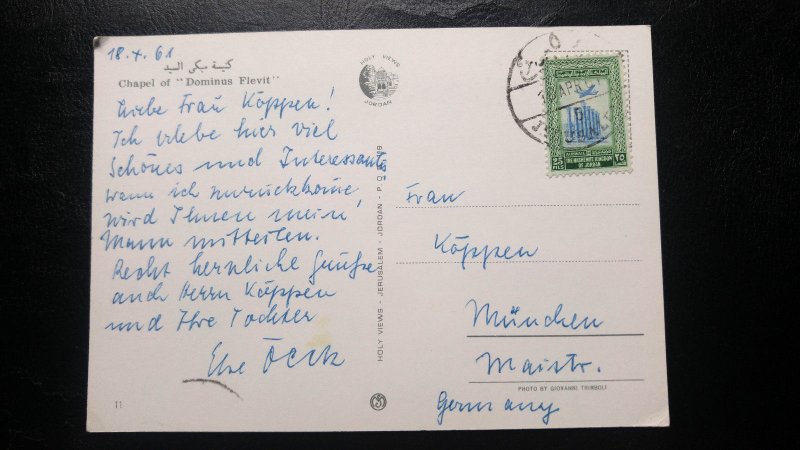 18.4.61
كنيسة مبكى السيد
Chapel of "Dominus Flevit"
Liebe Frau Köppen!
Ich erlebe hier viel
Schönes und Interessantes
wann ich zurückkomme,
wird Ihnen mein
Mann mitteilen.
Recht herzliche Grüße
auch Herrn Köppen
und Ihre Tochter
Else
HOLY VIEWS
JORDAN
HOLY VIEWS - JERUSALEM - JORDAN - P. O. B.
APR
25
FILS
THE HASHEMITE KINGDOM
OF JORDAN
٢٥
Frau
Köppen
München
Maistr.
Germany
PHOTO BY GIOVANNI TRIMBOLI
11